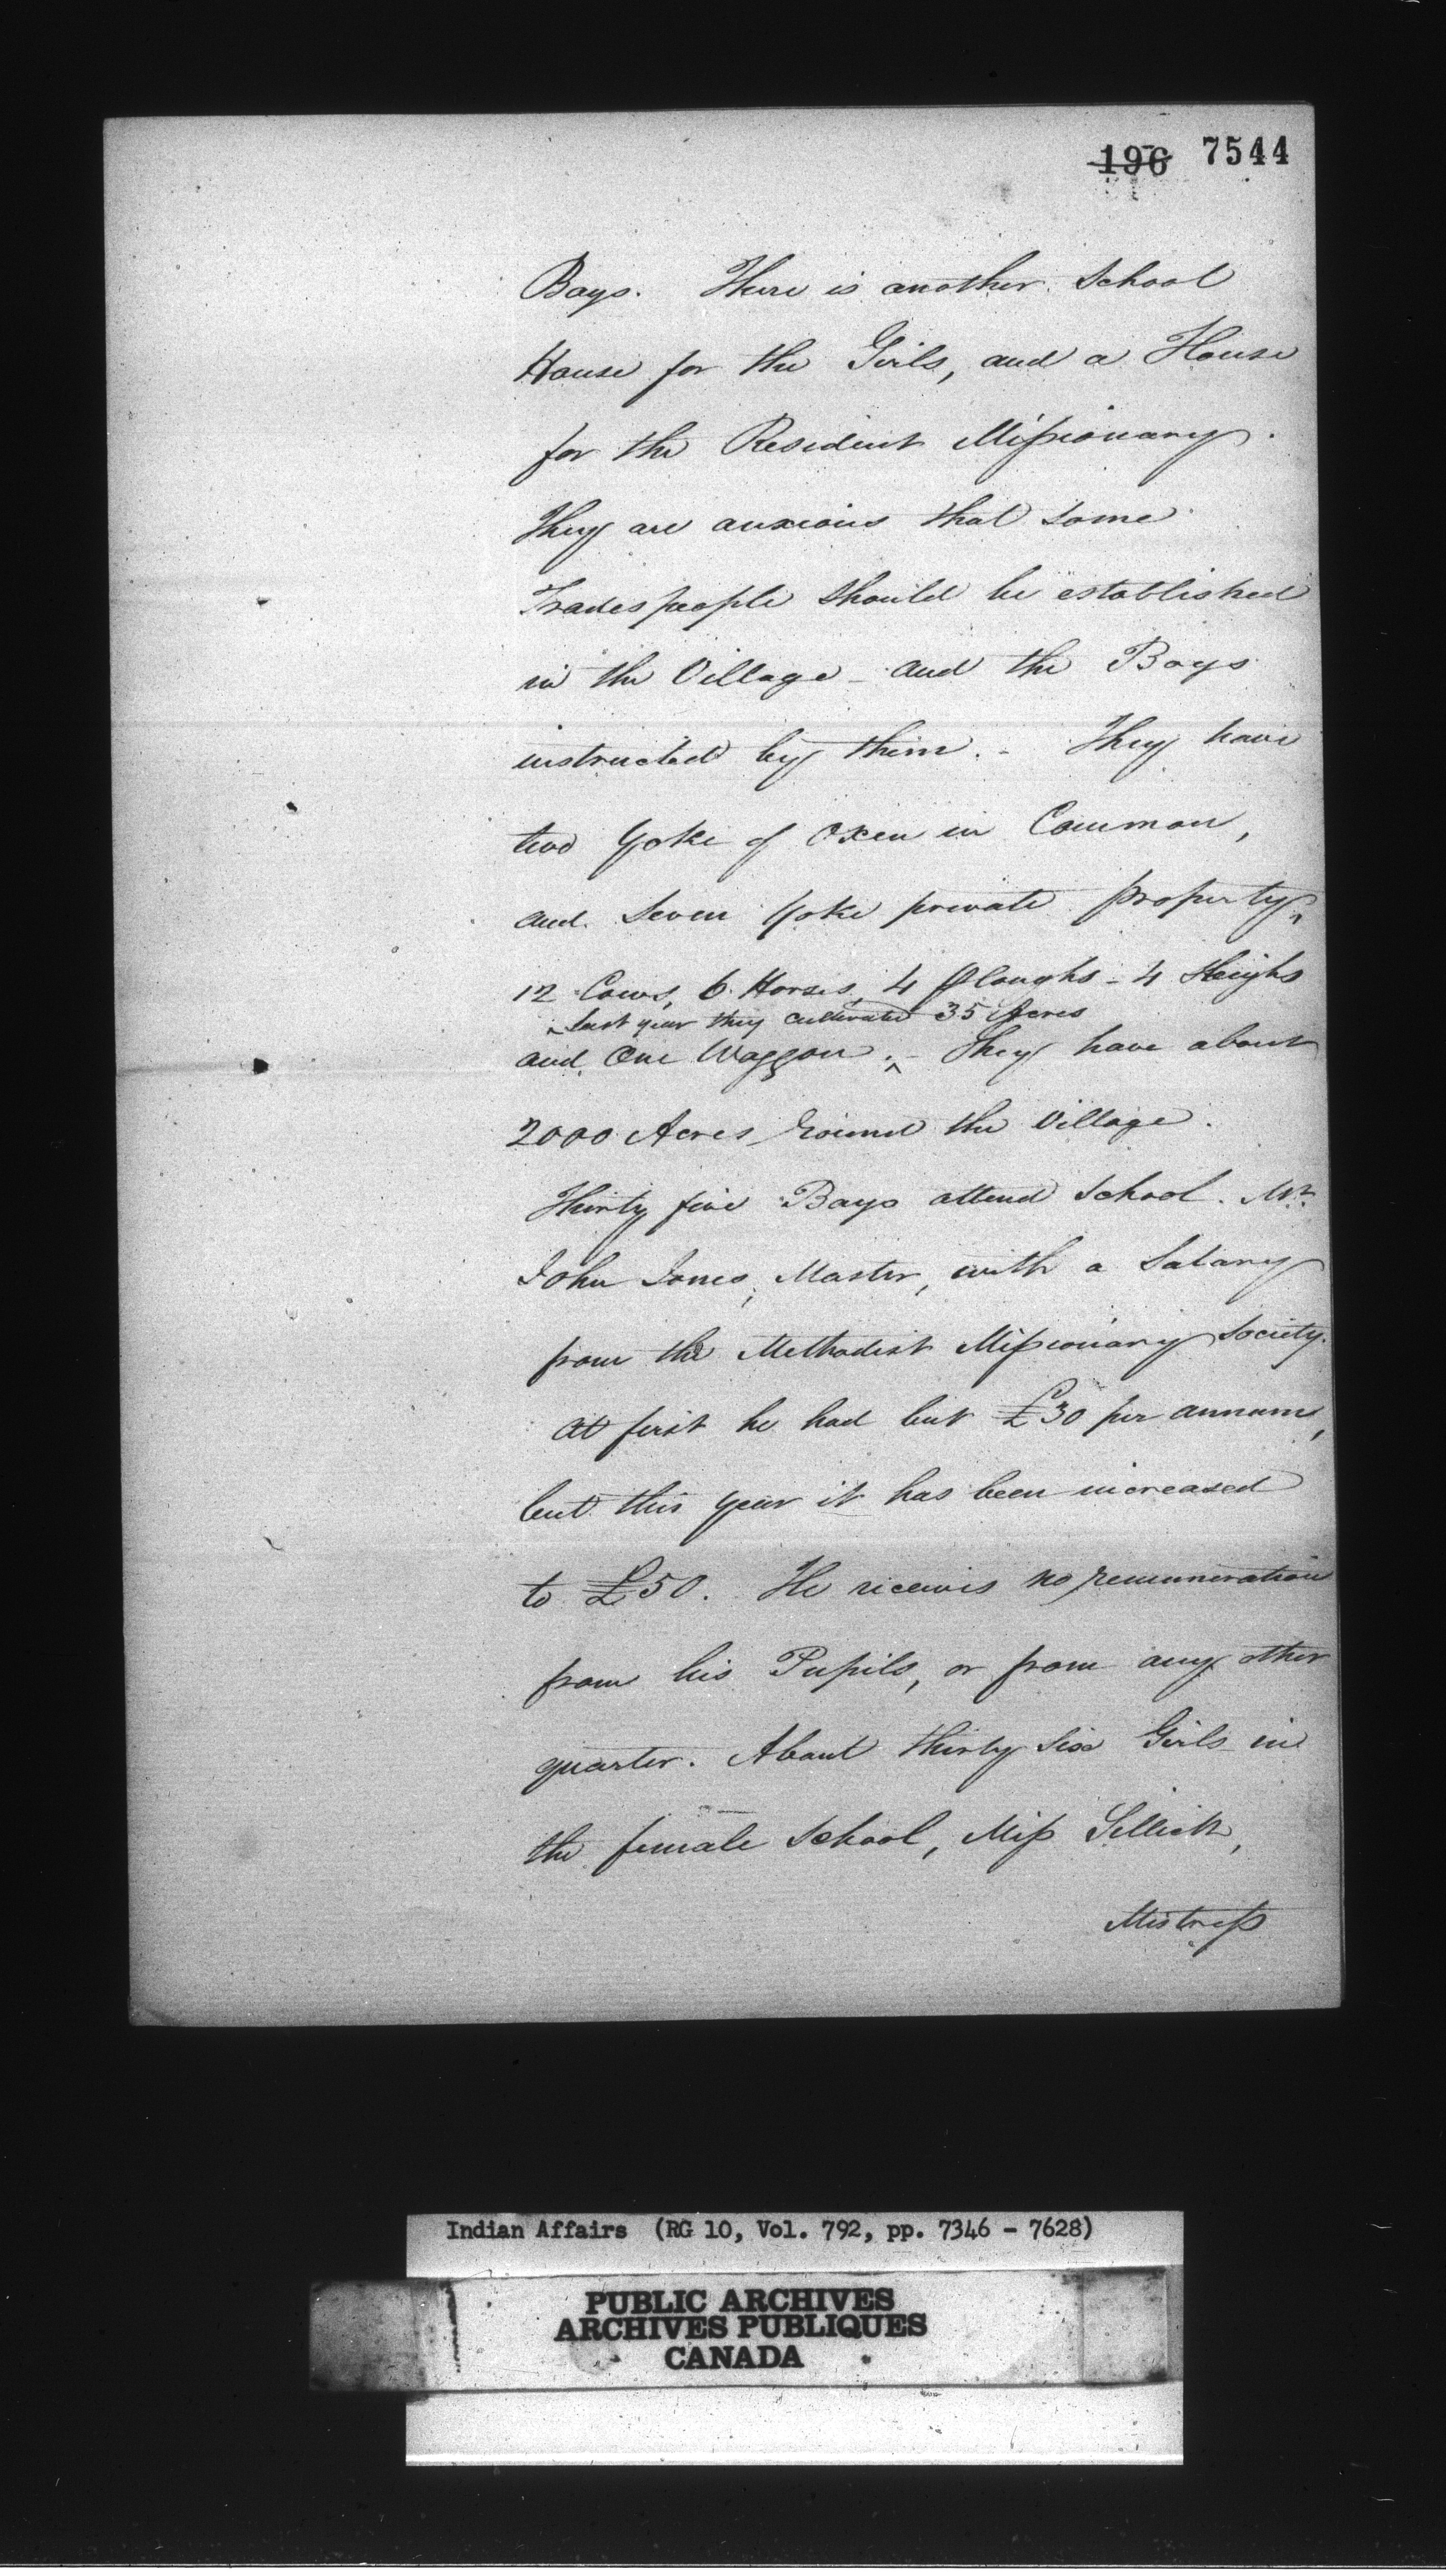 196 7544
Boys. There is another School
House for the Girls, and a House
for the Resident Missionary.
They are anxious that some
Tradespeople should be established
in the Village - and the Boys
instructed by them. - They have
two Yoke of Oxen in Common,
and Seven Yoke private property,
12 Cows, 6 Horses, 4 Ploughs - 4 Sleighs
^ Last year they cultivated 35 Acres
and One Waggon. ^ - They have about
2000 Acres round the Village.
Thirty five Boys attend School. Mr.
John Jones, Master, with a Salary
from the Methodist Missionary Society.
At first he had but £30 per annum,
but this year it has been increased
to £50. He receives no remuneration
from his Pupils, or from any other
quarter. About thirty six Girls in
the female School, Miss
Mistress
Indian Affairs (RG 10, Vol. 792, pp. 7346 - 7628)
PUBLIC ARCHIVES
ARCHIVES PUBLIQUES
CANADA